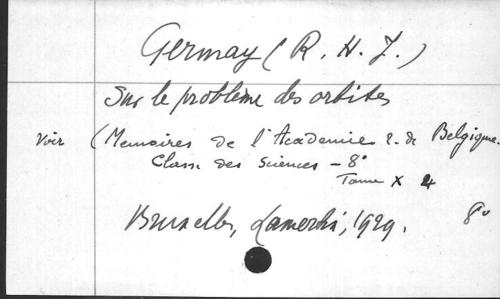 Germay (R. H. J.)
Sur le problème des orbites
Voir (Memoires de l'Academie r. de Belgique.
Classe des Sciences - 8°
Tome X 4
Bruxelles, Lamertin, 1929. 8°